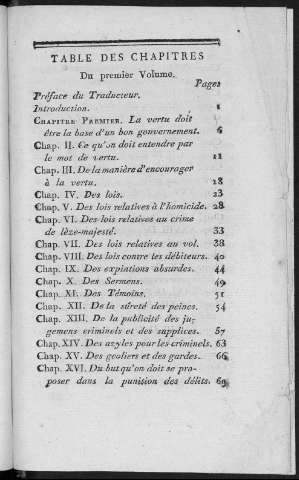 TABLE DES CHAPITRES
Du premier Volume.
Pages
Préface du Traducteur.
Introduction. 1
CHAPITRE PREMIER. La vertu doit
être la base d'un bon gouvernement. 6
Chap. II. Ce qu'on doit entendre par
le mot de vertu. 11
Chap. III. De la manière d'encourager
à la vertu. 18
Chap. IV. Des lois. 23
Chap. V. Des lois relatives à l'homicide. 28
Chap. VI. Des lois relatives au crime
de lèze-majesté. 33
Chap. VII. Des lois relatives au vol. 38
Chap. VIII. Des lois contre les débiteurs. 40
Chap. IX. Des expiations absurdes. 44
Chap. X. Des Sermens. 49
Chap. XI. Des Témoins. 51
Chap. XII. De la sûreté des peines. 54
Chap. XIII. De la publicité des ju-
gemens criminels et des supplices. 57
Chap. XIV. Des azyles pour les criminels. 63
Chap. XV. Des geoliers et des gardes. 66
Chap. XVI. Du but qu'on doit se pro-
poser dans la punition des délits. 69